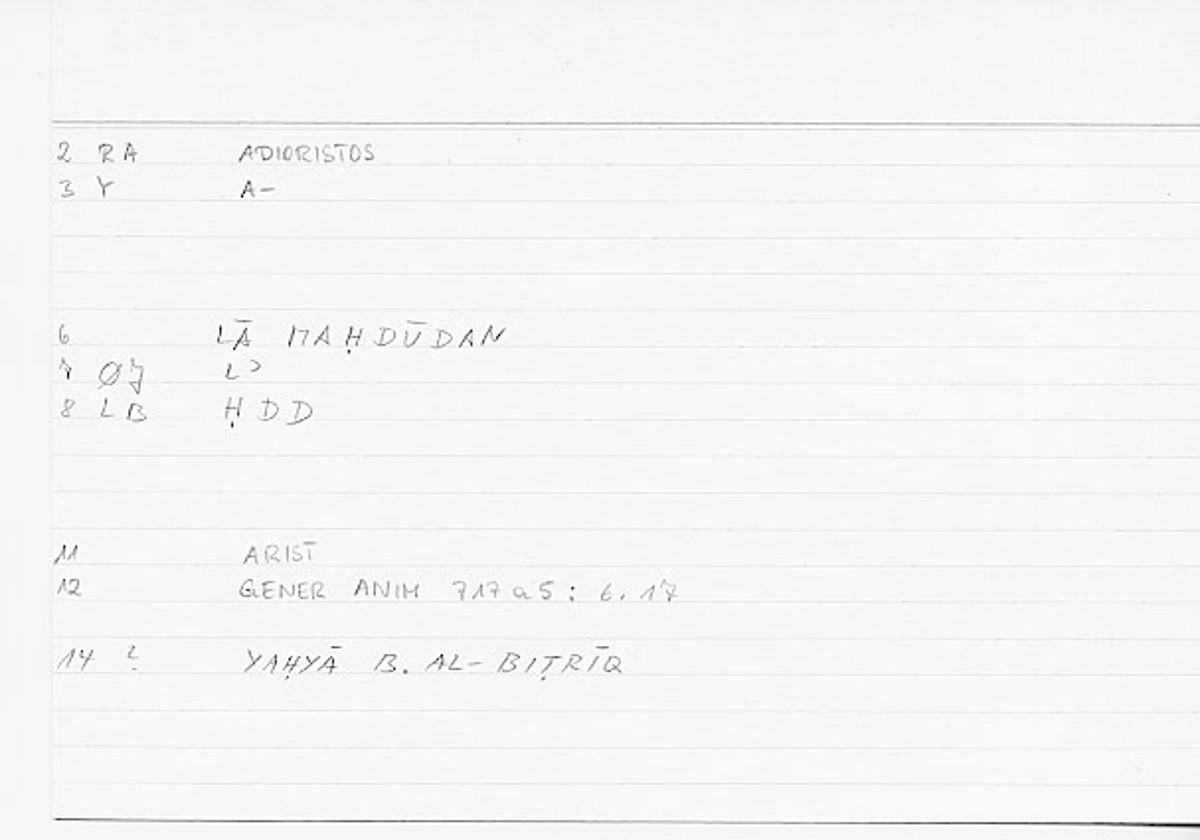 2 RA ADIORISTOS
3 Y A-
6 LĀ MAḤDŪDAN
7 ØJ Lʾ
8 LB ḤDD
11 ARIST
12 GENER ANIM 717a5 : 6.17
14 ? YAḤYĀ B. AL-BIṬRĪQ